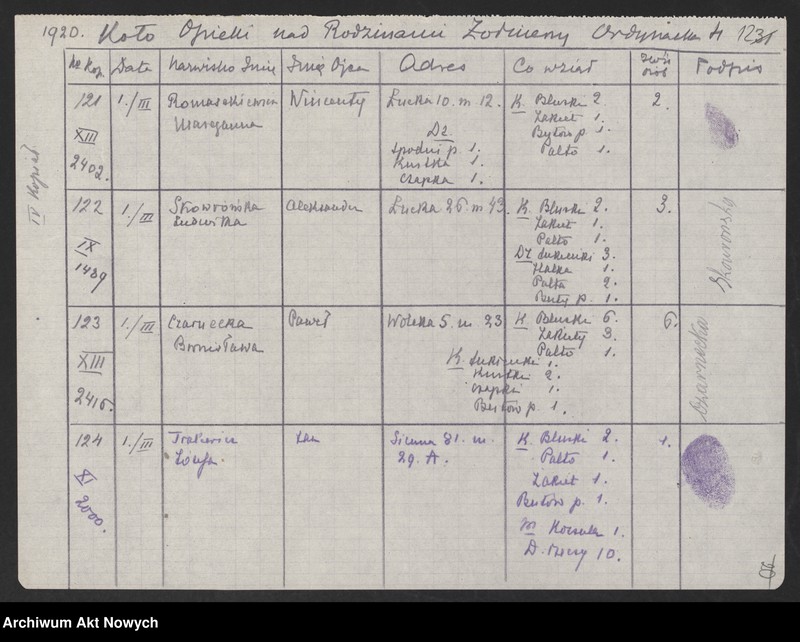 1920. Koło Opieki nad Rodzinami Żołnierzy Ordynacka 4 1231
IV Kopiał
Nr Kop. Data Nazwisko Imię Imię Ojca Adres Co wziął Ilość osób Podpis
121 1./III Romaszkiewicz Wincenty Łucka 10. m 12. K. Bluzki 2 2.
Maryanna Żakiet 1.
XIII Dz. Bytów p. 1.
Spodni p. 1. Palto 1.
2402. Kurtka 1.
Czapka 1.
122 1./III Skowrońska Aleksander Łucka 26. m 43. K. Bluzki 2. 3. Skowrońska
Ludwika Żakiet 1.
Palto 1.
IX Dz. Sukienki 3.
1489 Halka 1.
Palta 2.
Buty p. 1.
123 1./III Czarnecka Paweł Wolska 5. m 23 K Bluzki 6. 6. Czarnecka
Bronisława Żakiety 3.
Palto 1.
XIII K. Sukienki 1.
Kurtki 2.
2416. Czapki 1.
Butów p. 1.
124 1./III Jan Sienna 81. m. K. Bluzki 2. 1.
Zofja. 29. A. Palto 1.
XI Żakiet 1.
2000. Butów p. 1.
M Koszula 1.
D. rzeczy 10.
Archiwum Akt Nowych